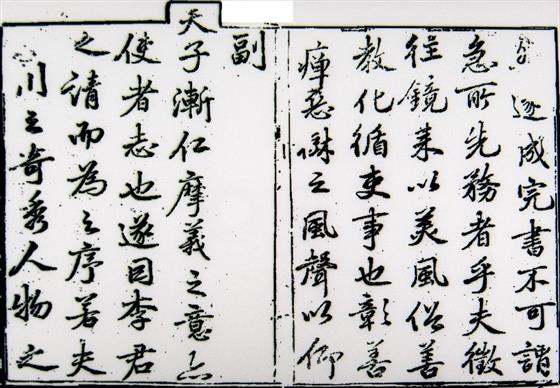 遂成完書不可謂
急所先務者乎夫徵
往鏡來以美風俗善
教化循吏事也彰善
癉惡樹之風聲以仰
副
天子漸仁摩義之意亦
使者志也遂因李君
之請而為之序若夫
川之奇秀人物之